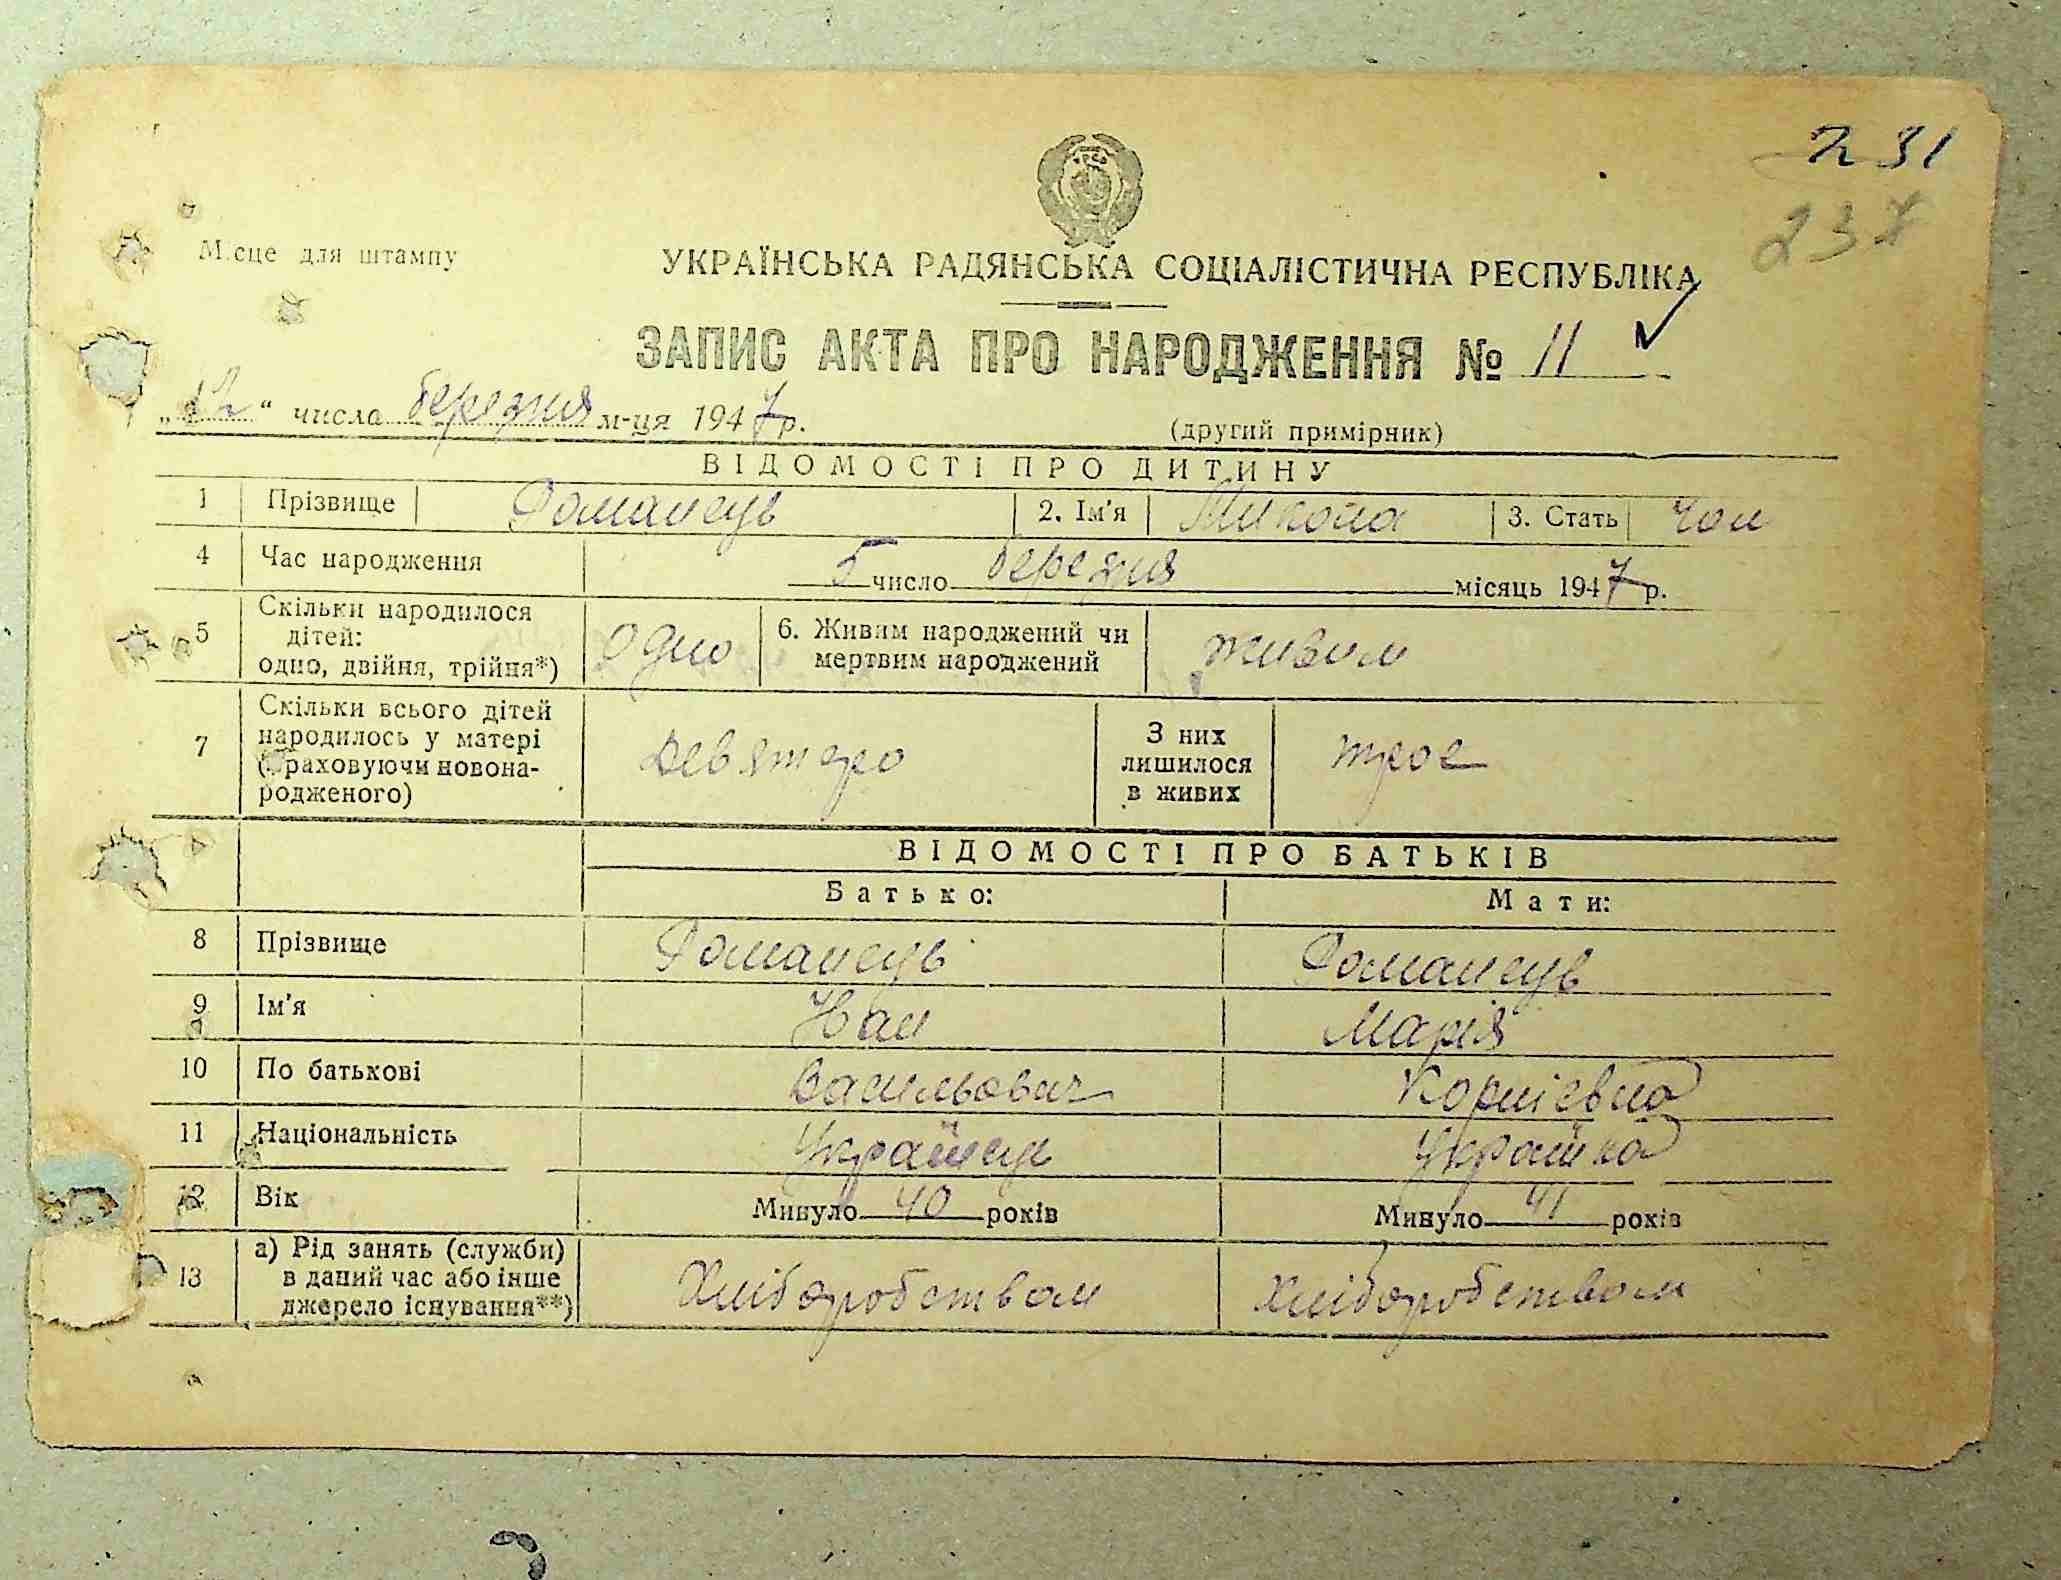 231
237
УРСР
Місце для штампу
УКРАЇНСЬКА РАДЯНСЬКА СОЦІАЛІСТИЧНА РЕСПУБЛІКА
ЗАПИС АКТА ПРО НАРОДЖЕННЯ № 11
„12“ числа березня м-ця 1947 р.
(другий примірник)
ВІДОМОСТІ ПРО ДИТИНУ
1 Прізвище Романець 2. Ім'я Микола 3. Стать Чол
4 Час народження 5 число березня місяць 1947 р.
5 Скільки народилося дітей: одно, двійня, трійня*) Одно 6. Живим народжений чи мертвим народжений живим
7 Скільки всього дітей народилось у матері (враховуючи новонародженого) Дев'ятеро З них лишилося в живих троє
ВІДОМОСТІ ПРО БАТЬКІВ
Батько: Мати:
8 Прізвище Романець Романець
9 Ім'я Іван Марія
10 По батькові Васильович Корніевна
11 Національність Українець Українка
12 Вік Минуло 40 років Минуло 41 років
13 а) Рід занять (служби) в даний час або інше джерело існування**) Хліборобством Хліборобством